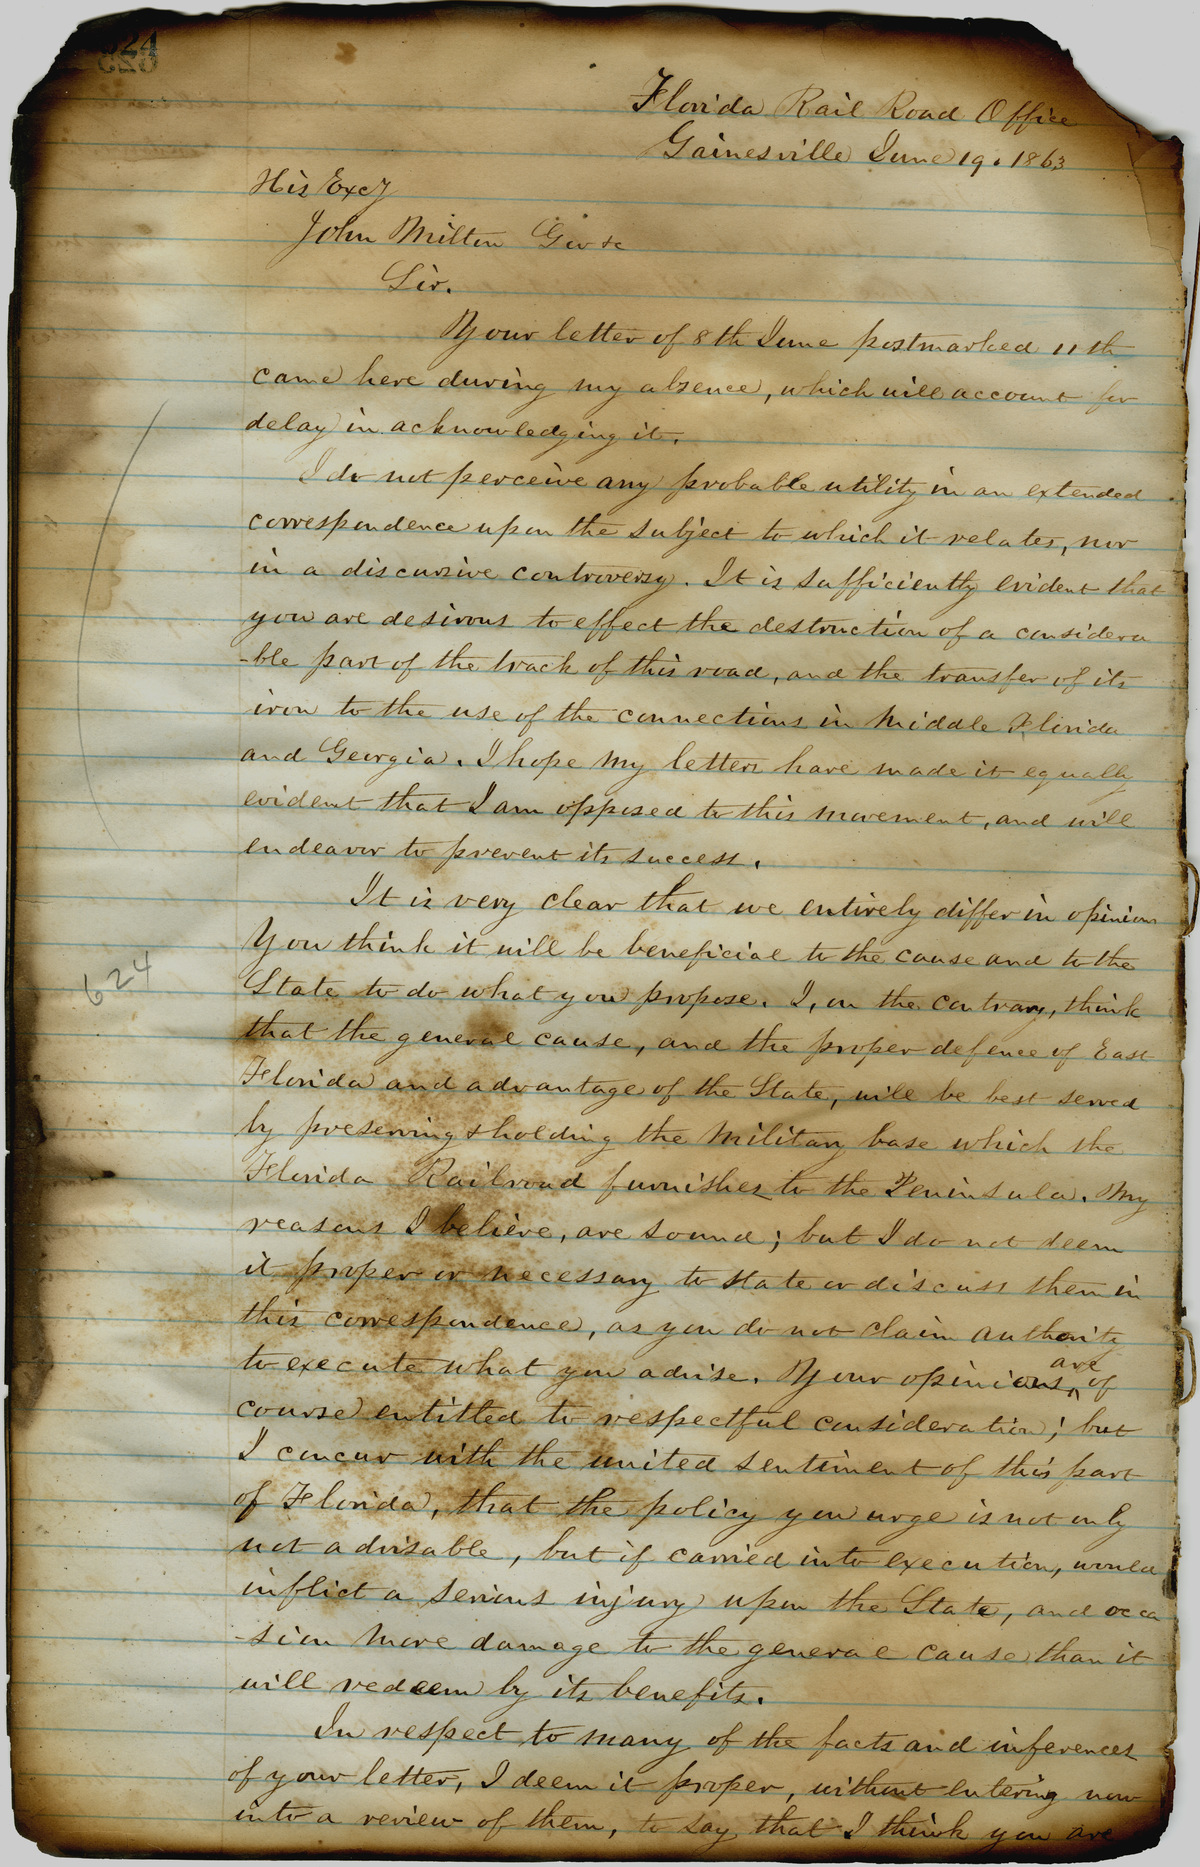 624
625
Florida Rail Road Office
Gainesville June 19. 1863
His Excy
John Milton Govr &c
Sir.
Your letter of 8th June postmarked 11th
came here during my absence, which will account for
delay in acknowledging it.
I do not perceive any probable utility in an extended
correspondence upon the subject to which it relates, nor
in a discursive controversy. It is sufficiently evident that
you are desirous to effect the destruction of a considera
-ble part of the track of this road, and the transfer of its
iron to the use of the connections in Middle Florida
and Georgia. I hope my letters have made it equally
evident that I am opposed to this movement, and will
endeavor to prevent its success.
It is very clear that we entirely differ in opinion
You think it will be beneficial to the cause and to the
State to do what you propose. I, on the contrary, think
that the general cause, and the proper defence of East
Florida and advantage of the State, will be best served
by preserving & holding the military base which the
Florida Railroad furnishes to the Peninsula. My
reasons I believe, are sound; but I do not deem
it proper or necessary to state or discuss them in
this correspondence, as you do not claim authority
to execute what you advise. Your opinions are of
course entitled to respectful consideration; but
I concur with the united sentiment of this part
of Florida, that the policy you urge is not only
not advisable, but if carried into execution, would
inflict a serious injury upon the State, and occa
-sion more damage to the general cause than it
will redeem by its benefits.
In respect to many of the facts and inferences
of your letter, I deem it proper, without entering now
into a review of them, to say that I think you are
624